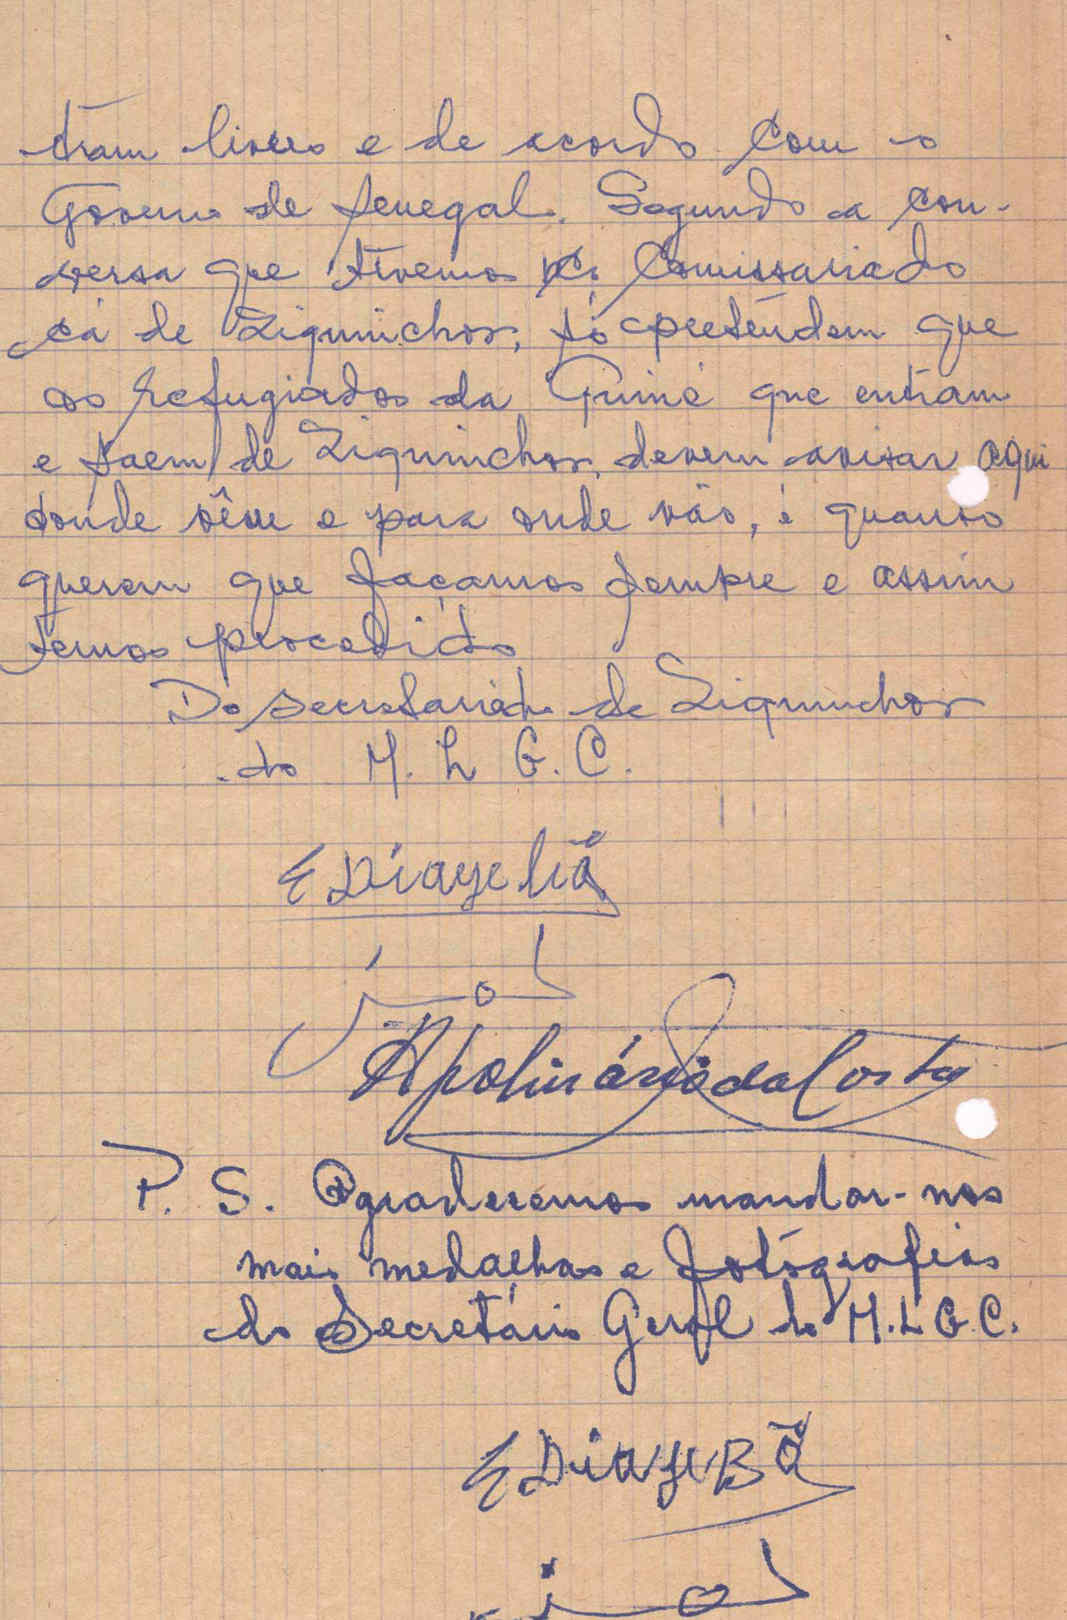 tram livres e de acordo com o
Governo de Senegal. Segundo a con-
versa que tivemos c/ Comissariado
cá de Ziguinchor, só pretendem que
os refugiados da Guiné que entram
e saem de Ziguinchor, devem avisar aqui
donde vêm e para onde vão, é quanto
querem que façamos sempre e assim
temos procedido
Do Secretariado de Ziguinchor
do M. L G. C.
E Diaye
Apolinário da Costa
P. S. Agradecemos mandar-nos
mais medalhas e fotógrafias
do Secretário Geral do M. L G. C.
E Diaye Bã